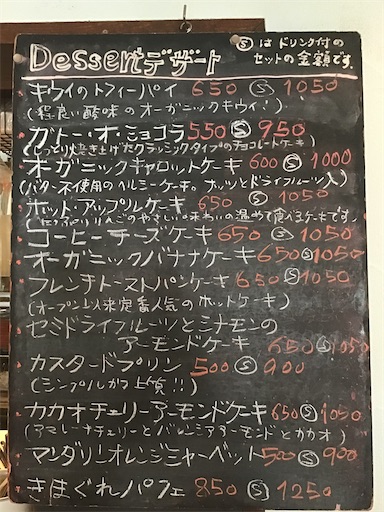 Dessert デザート
Ⓢ は ドリンク付の
セットの金額です.
キウイのトフィーパイ 650 Ⓢ 1050
(程良い酸味のオーガニックキウイ!)
ガトー・オ・ショコラ 550 Ⓢ 950
(しっとり焼き上げたクラッシックタイプのチョコレートケーキ)
オーガニックキャロットケーキ 600 Ⓢ 1000
(バター不使用のヘルシーケーキ。ナッツとドライフルーツ入)
ホット・アップルケーキ 650 Ⓢ 1050
りんごのやさしい味わいの温めて食べるケーキです。
コーヒーチーズケーキ 650 Ⓢ 1050
オーガニックバナナケーキ 650 Ⓢ 1050
フレンチトーストパンケーキ 650 Ⓢ 1050
(オープン以来定番人気のホットケーキ)
セミドライフルーツとシナモンの
アーモンドケーキ 650 Ⓢ 1050
カスタードプリン 500 Ⓢ 900
(シンプルかつ上質!!)
カカオチェリーアーモンドケーキ 650 Ⓢ 1050
(アマレーナチェリーとバレンシアアーモンドとカカオ)
マンダリンオレンジシャーベット 500 Ⓢ 900
きまぐれパフェ 850 Ⓢ 1250